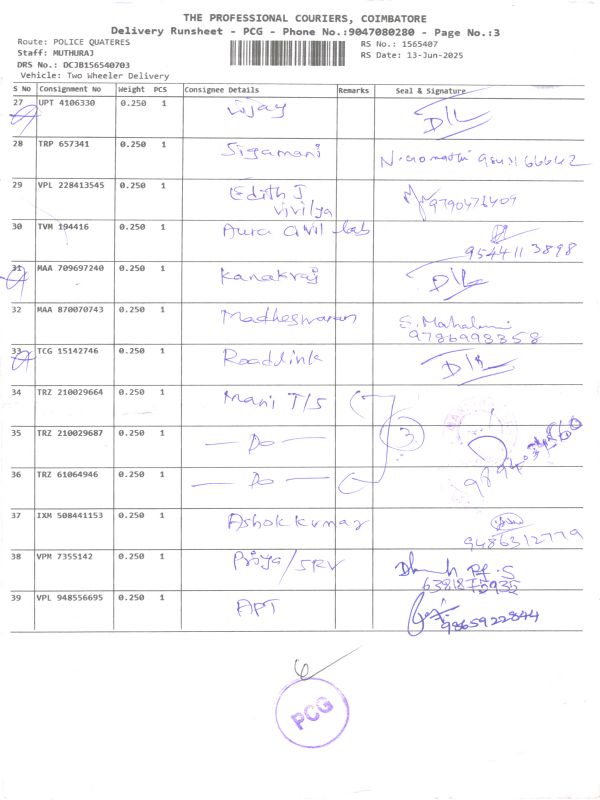 THE PROFESSIONAL COURIERS, COIMBATORE
Delivery Runsheet - PCG - Phone No.:9047080280 - Page No.:3
Route: POLICE QUATERES RS No.: 1565407
Staff: MUTHURAJ RS Date: 13-Jun-2025
DRS No.: DCJB156540703
Vehicle: Two Wheeler Delivery
S No Consignment No Weight PCS Consignee Details Remarks Seal & Signature
27 UPT 4106330 0.250 1 Vijay D/L
28 TRP 657341 0.250 1 Sigamani
29 VPL 228413545 0.250 1 Edith J
Vivilya 9790476409
30 TVM 194416 0.250 1 Aura civil lab
9544113898
31 MAA 709697240 0.250 1 Kanakraj D/L
32 MAA 870070743 0.250 1 Madheswaran
9786998358
33 TCG 15142746 0.250 1 Roadlink D/L
34 TRZ 210029664 0.250 1 Mani T/S
35 TRZ 210029687 0.250 1 — Do — 3
36 TRZ 61064946 0.250 1 — Do —
37 IXM 508441153 0.250 1 Ashok kumar
9486312779
38 VPM 7355142 0.250 1 Priya/SRV
39 VPL 948556695 0.250 1 APT
9865922844
PCG